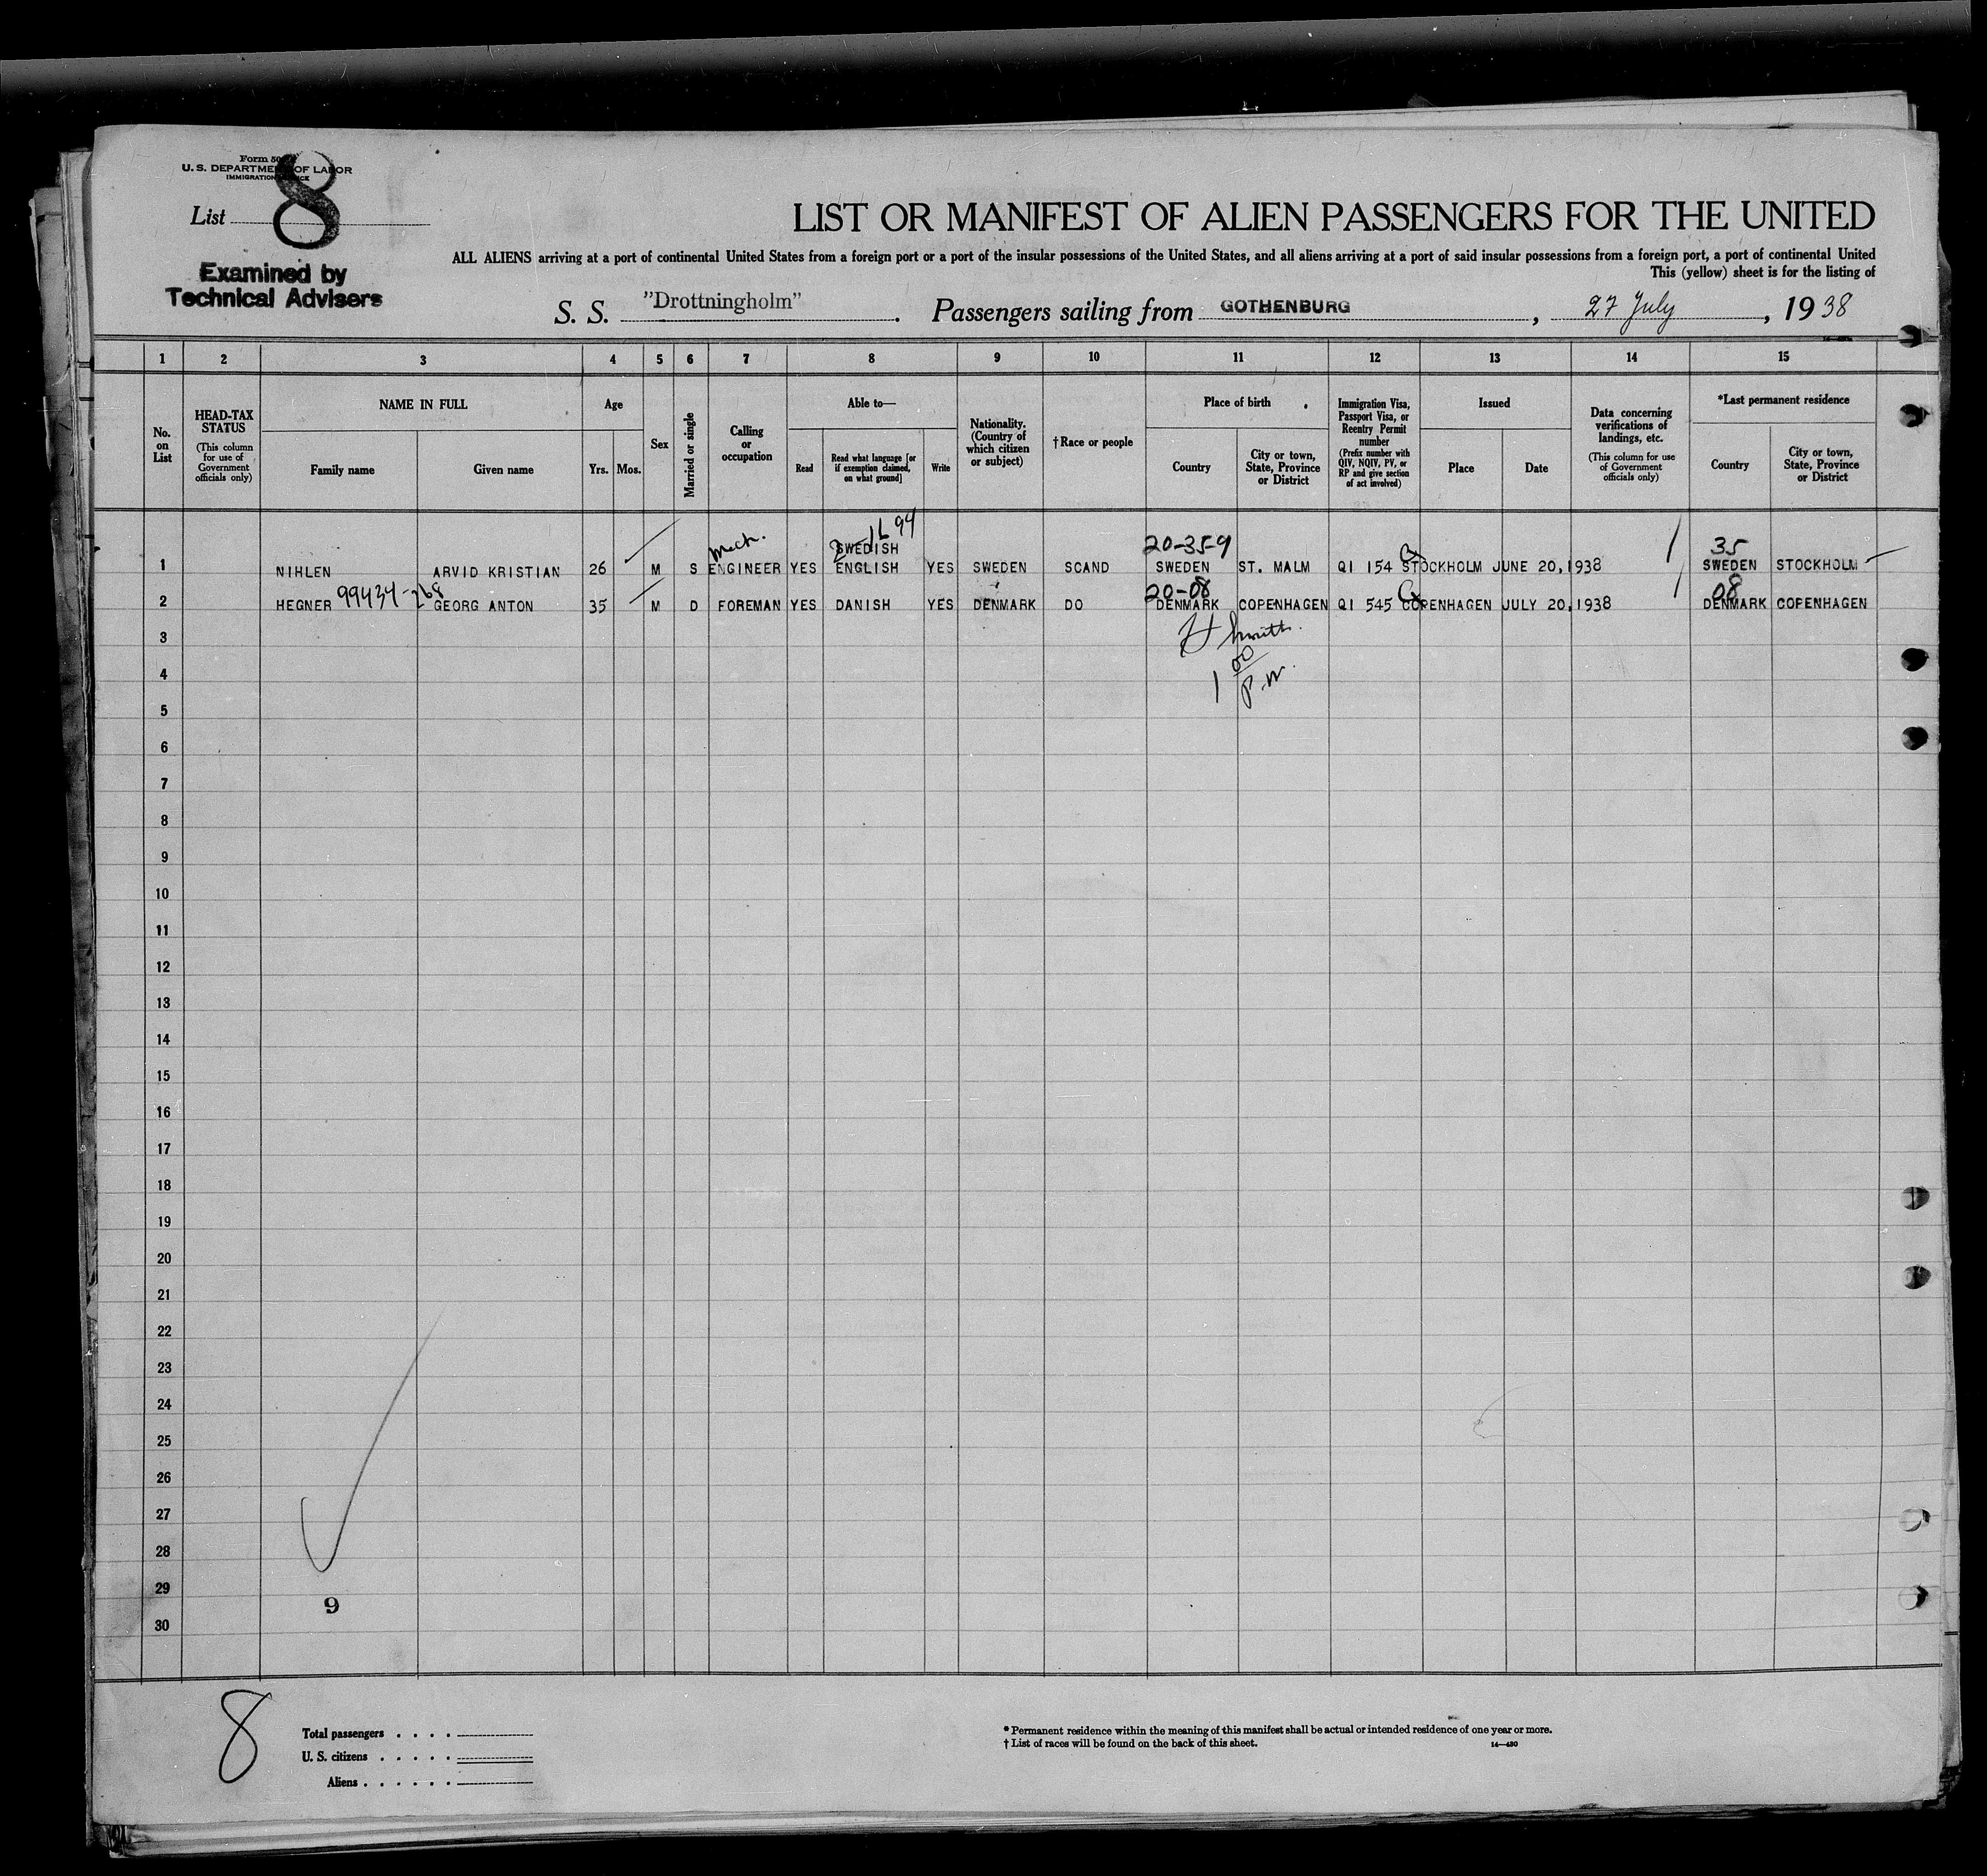 Form 50
U. S. DEPARTMENT OF LABOR
IMMIGRATION
List 8
Examined by
Technical Advisers
LIST OR MANIFEST OF ALIEN PASSENGERS FOR THE UNITED
ALL ALIENS arriving at a port of continental United States from a foreign port or a port of the insular possessions of the United States, and all aliens arriving at a port of said insular possessions from a foreign port, a port of continental United
This (yellow) sheet is for the listing of
S. S. "Drottningholm". Passengers sailing from GOTHENBURG, 27 July, 1938
1 2 3 4 5 6 7 8 9 10 11 12 13 14 15
No. on List
HEAD-TAX STATUS
(This column for use of Government officials only)
NAME IN FULL
Family name
Given name
Age
Yrs. Mos.
Sex
Married or single
Calling or occupation
Able to—
Read
Read what language [or if exemption claimed, on what ground]
Write
Nationality. (Country of which citizen or subject)
† Race or people
Place of birth
Country
City or town, State, Province or District
Immigration Visa, Passport Visa, or Reentry Permit number
(Prefix number with QIV, NQIV, PV, or RP and give section of act involved)
Issued
Place
Date
Data concerning verifications of landings, etc.
(This column for use of Government officials only)
*Last permanent residence
Country
City or town, State, Province or District
94
Mech. SWEDISH 20-35-9 35
1 NIHLEN ARVID KRISTIAN 26 M S ENGINEER YES ENGLISH YES SWEDEN SCAND SWEDEN ST. MALM QI 154 STOCKHOLM JUNE 20,1938 SWEDEN STOCKHOLM
99434-268 20-08 08
2 HEGNER GEORG ANTON 35 M D FOREMAN YES DANISH YES DENMARK DO DENMARK COPENHAGEN QI 545 COPENHAGEN JULY 20,1938 DENMARK COPENHAGEN
3
4
5
6
7
8
9
10
11
12
13
14
15
16
17
18
19
20
21
22
23
24
25
26
27
28
29
9
30
8
Total passengers . . . .
U. S. citizens . . . . .
Aliens . . . . . .
* Permanent residence within the meaning of this manifest shall be actual or intended residence of one year or more.
† List of races will be found on the back of this sheet.
14—430